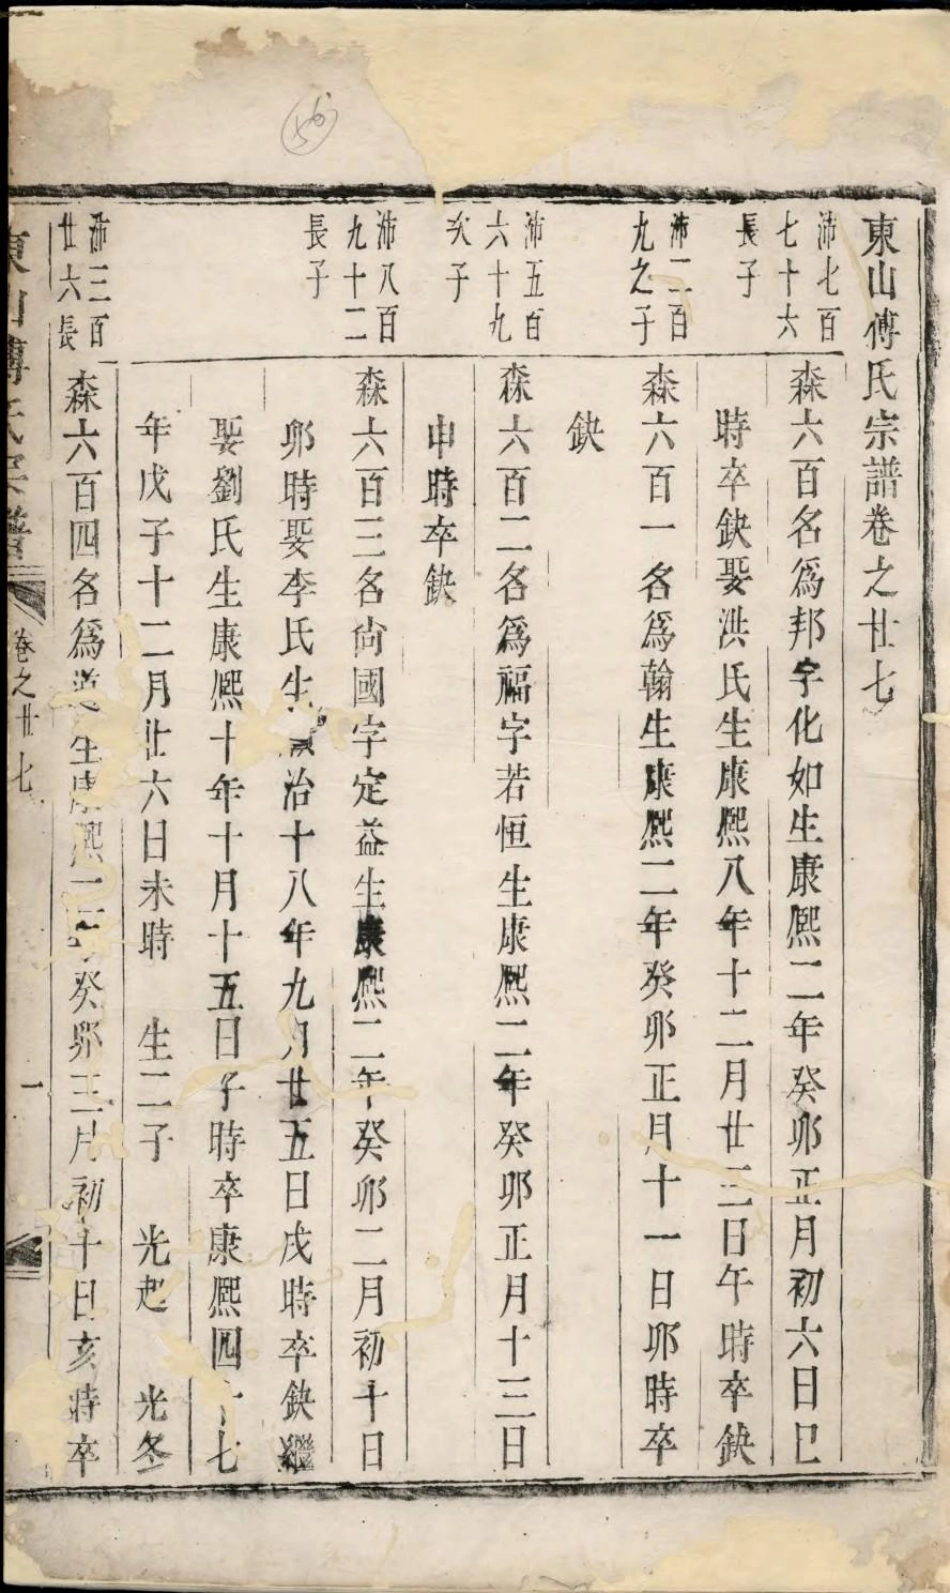 東山傅氏宗譜卷之廿七
沛七百
七十六
長子
森六百名爲邦字化如生康熙二年癸卯正月初六日巳
時卒缺娶洪氏生康熙八年十二月廿三日午時卒缺
沛二百
九之子
森六百一名爲翰生康熙二年癸卯正月十一日卯時卒
缺
沛五百
六十九
次子
森六百二名爲福字若恒生康熙二年癸卯正月十三日
申時卒缺
沛八百
九十二
長子
森六百三名尙國字定益生康熙二年癸卯二月初十日
卯時娶李氏生順治十八年九月廿五日戌時卒缺繼
娶劉氏生康熙十年十月十五日子時卒康熙四十七
年戊子十二月廿六日未時 生二子 光起 光冬
沛三百
廿六長
森六百四名爲道生康熙二年癸卯三月初十日亥時卒
東山傅氏宗譜 卷之廿七 一
56